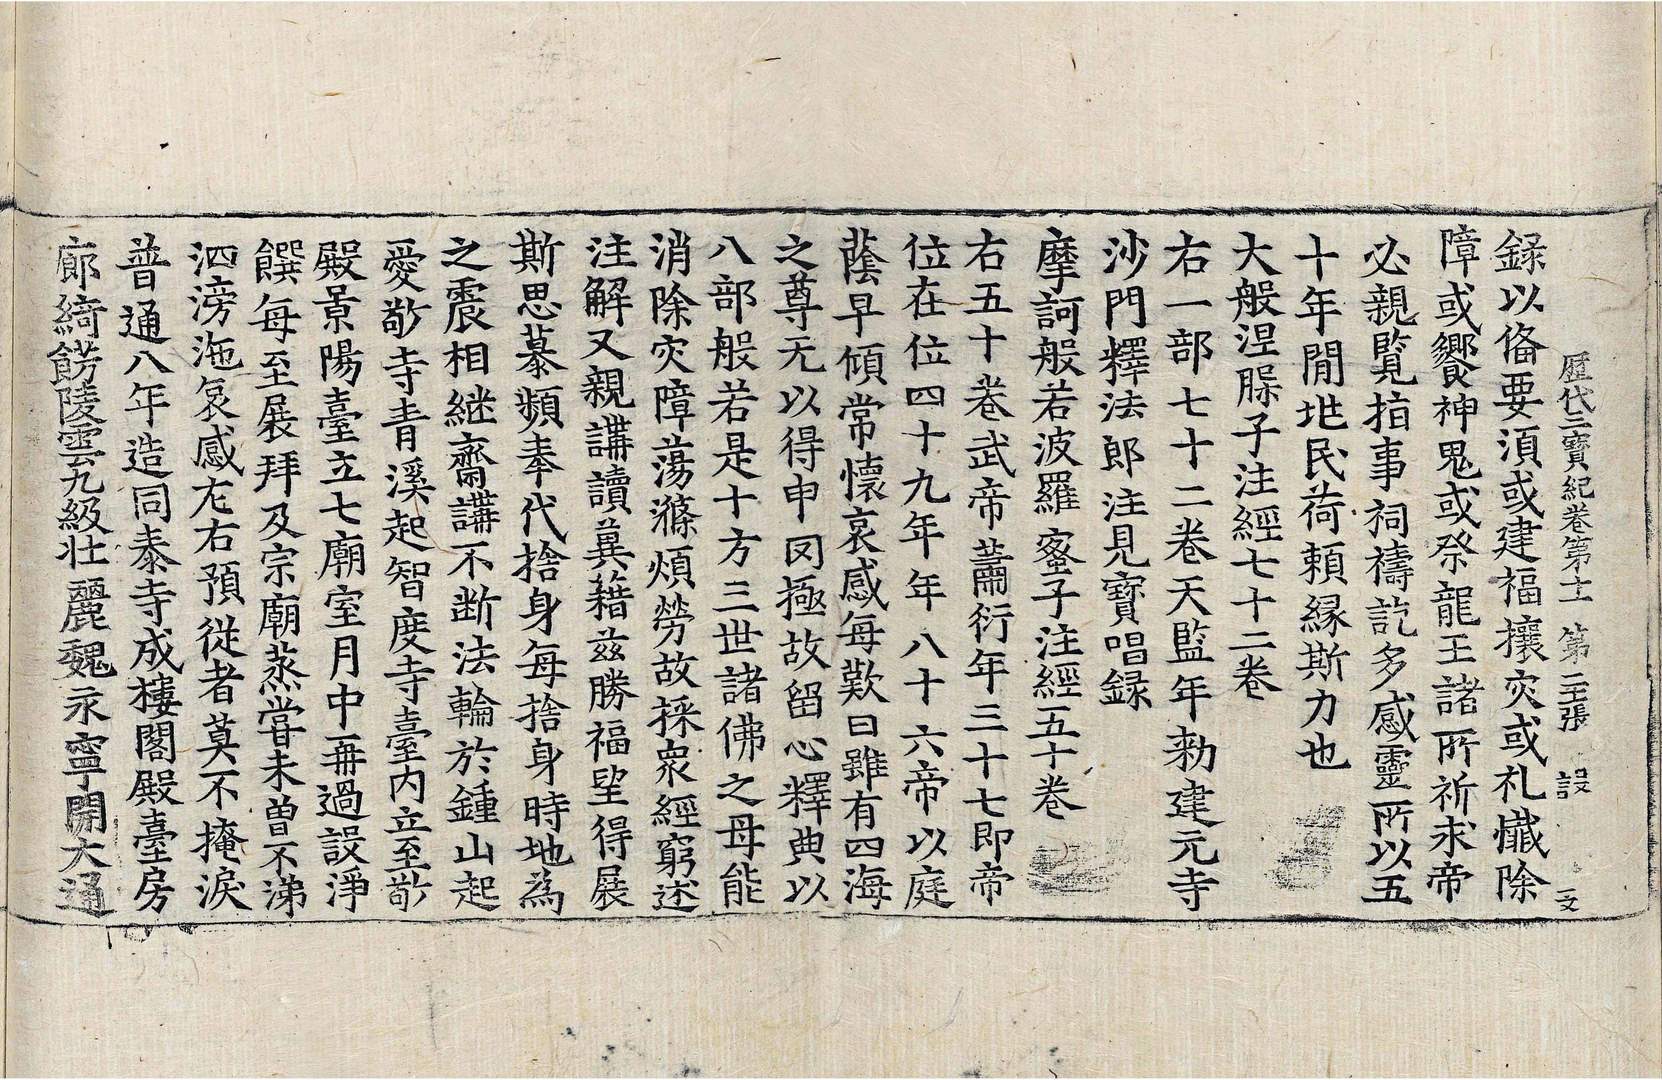 歷代三寶紀卷第十一 第二十二張 設 文
錄以俻要湏或建福攘灾或礼懺除
障或饗神鬼或祭龍王諸所祈求帝
必親覽指事祠禱訖多感靈所以五
十年閒兆民荷賴縁斯力也
大般涅槃子注經七十二卷
右一部七十二卷天監年勑建元寺
沙門釋法郎注見寶唱録
摩訶般若波羅蜜子注經五十卷
右五十卷武帝蕭衍年三十七即帝
位在位四十九年年八十六帝以庭
蔭早傾常懷哀感每歎曰雖有四海
之尊无以得申罔極故留心釋典以
八部般若是十方三世諸佛之母能
消除灾障蕩滌煩勞故採衆經窮述
注解又親講讀兾藉兹勝福望得展
斯思慕頻奉代捨身每捨身時地為
之震相継齋講不断法輪於鍾山起
愛敬寺青溪起智度寺臺内立至敬
殿景陽臺立七廟室月中再過設淨
饌每至展拜及宗廟蒸甞未曽不涕
泗滂沲哀感左右預從者莫不掩淚
普通八年造同泰寺成樓閣殿臺房
廊綺餝陵雲九級壮麗魏永寧開大通